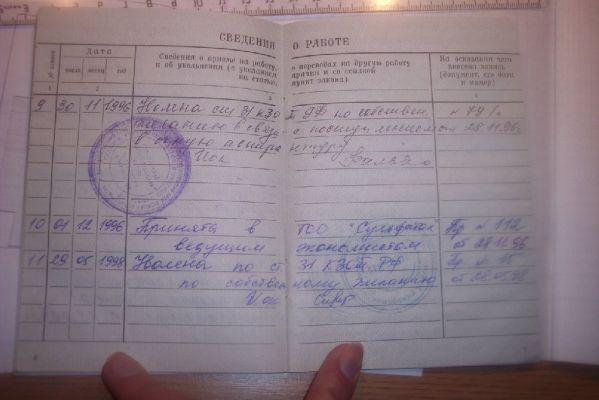 СВЕДЕНИЯ О РАБОТЕ
№ записи
Дата
число месяц год
Сведения о приеме на работу,
и об увольнении (с указанием
на статью,
о переводах на другую работу
причин и со ссылкой
пункт закона)
На основании чего
внесена запись
(документ, его дата
и номер)
1 2 3 4
9 30 11 1996 Уволена ст 31 КЗоТ РФ по собствен. № 79
желанию в связи с поступлением 28.11.96
в очную аспирантуру
10 01 12 1996 Принята в ТОО "Сульфат" Пр № 112
ведущим экономистом от 28.11.96
11 29 05 1998 Уволена по ст. 31 КЗоТ РФ № 15
по собственному желанию от 28.05.98
6 7